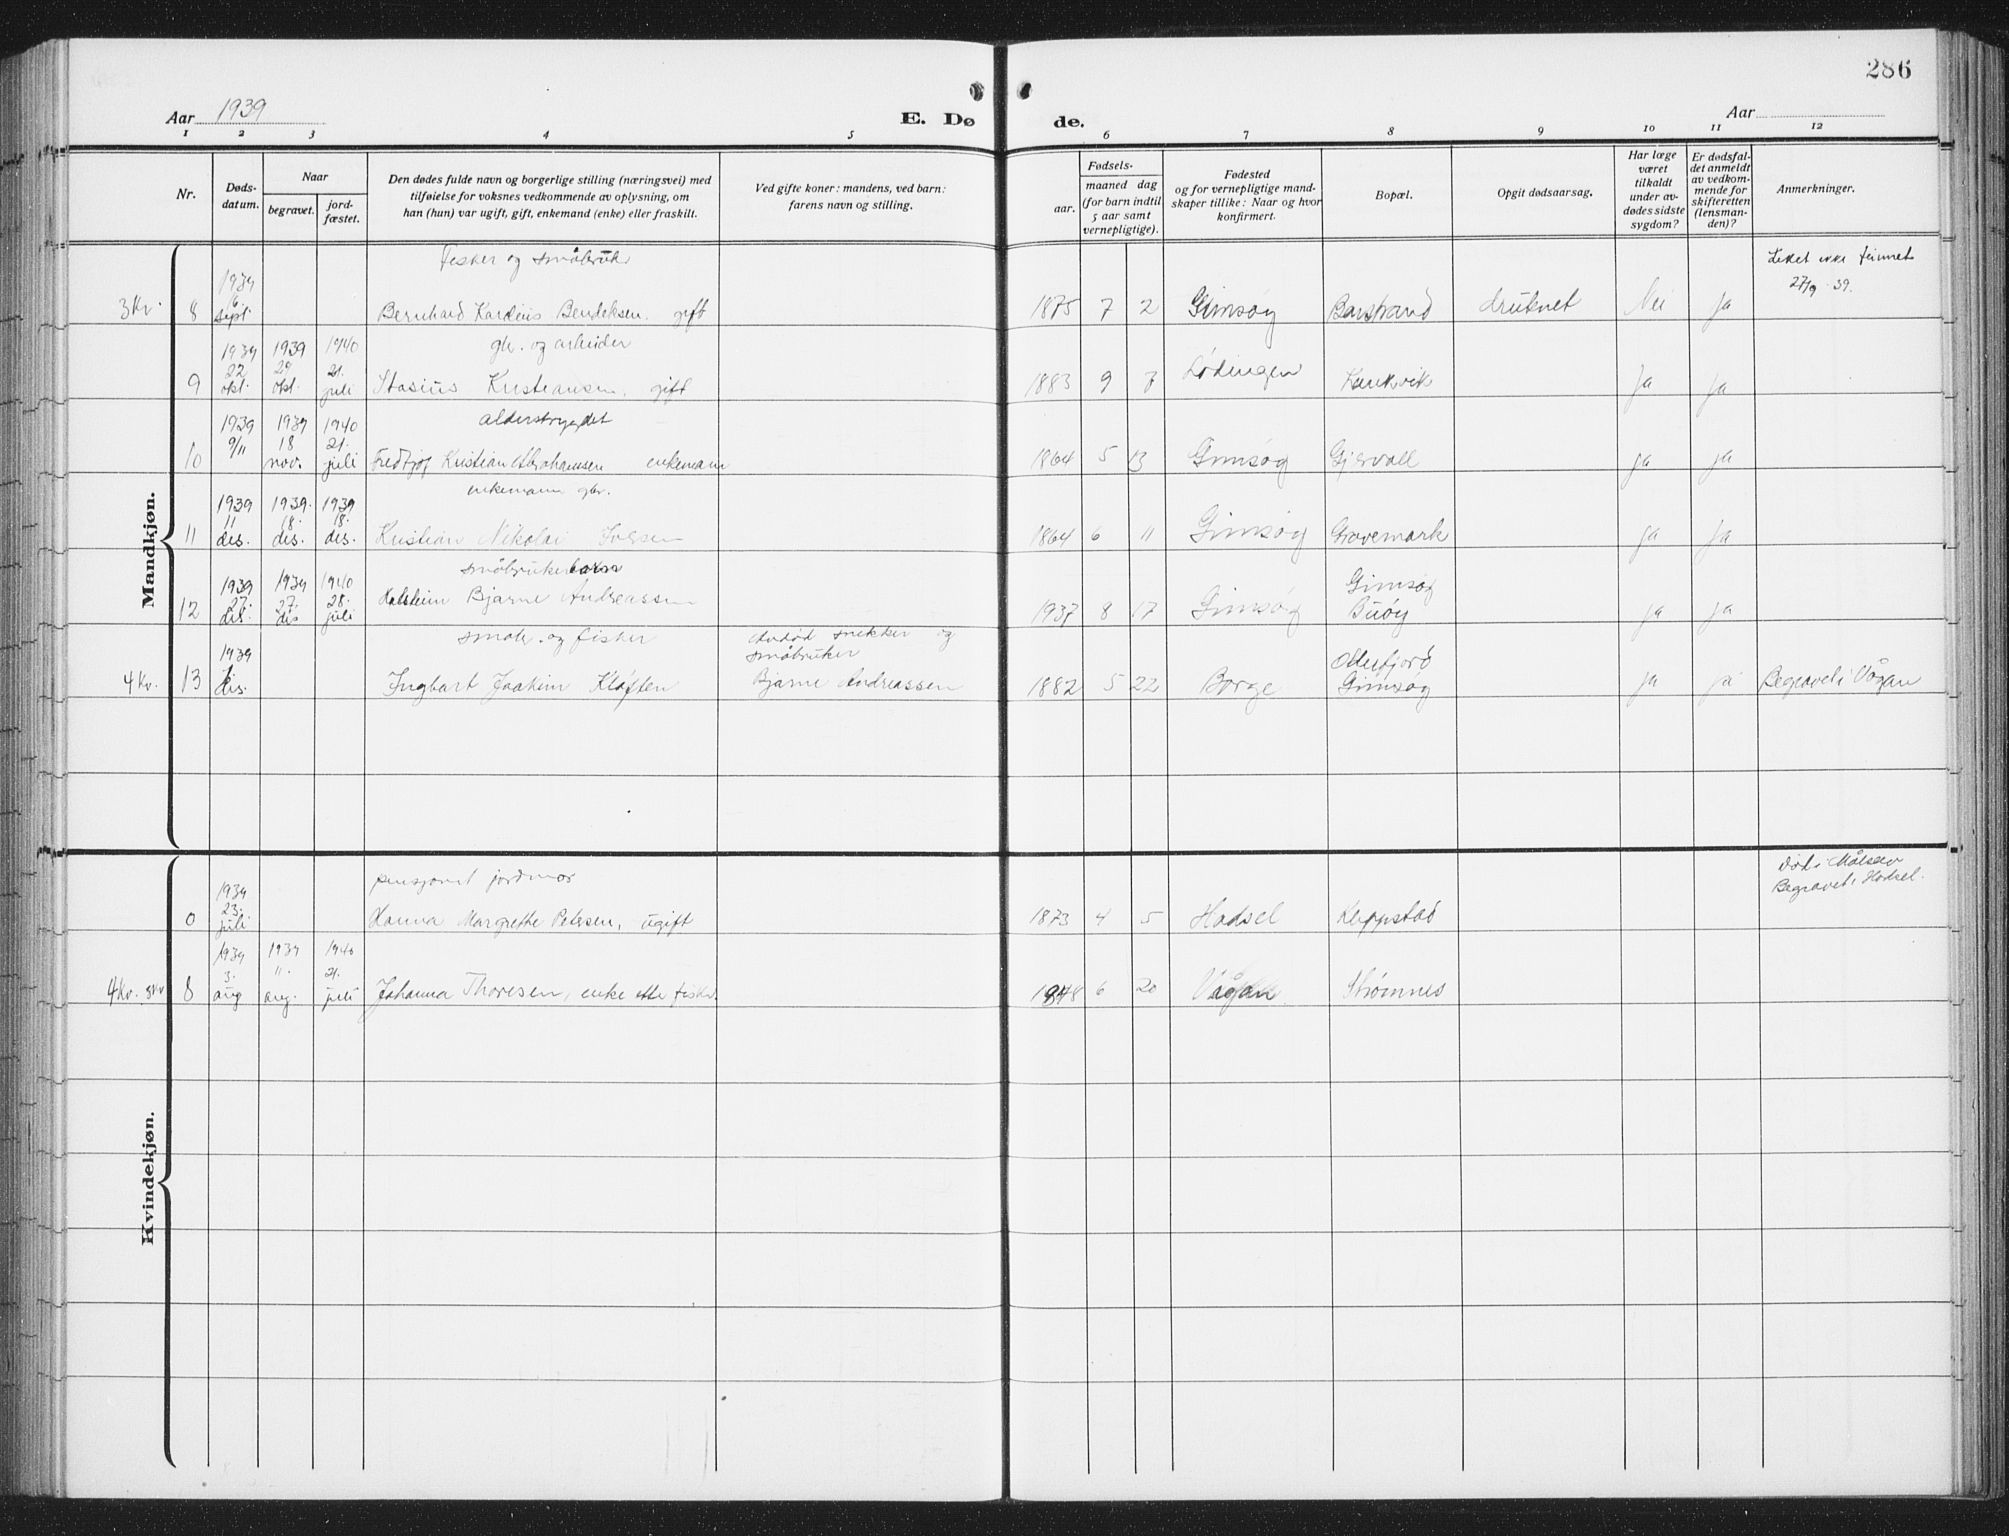 286
Aar 1939
E. Dø
de.
Aar
1 2 3 4 5 6 7 8 9 10 11 12
Nr.
Døds-
datum.
Naar
begravet.
jord-
fæstet.
Den dødes fulde navn og borgerlige stilling (næringsvei) med
tilføielse for voksnes vedkommende av oplysning, om
han (hun) var ugift, gift, enkemand (enke) eller fraskilt.
Ved gifte koner: mandens, ved barn:
farens navn og stilling.
Fødsels-
aar.
maaned dag
(for barn indtil
5 aar samt
vernepligtige).
Fødested
og for vernepligtige mand-
skaper tillike: Naar og hvor
konfirmert.
Bopæl.
Opgit dødsaarsag.
Har læge
været
tilkaldt
under av-
dødes sidste
sygdom?
Er dødsfal-
det anmeldt
av vedkom-
mende for
skifteretten
(lensman-
den)?
Anmerkninger.
Mandkjøn.
Fisker og småbruk
1939 Liket ikke funnet
6 27/9 39.
3 Kv. 8 sept. Bernhard Kardeus Bendiksen. gift 1875 7 2 Gimsøy Barstrand druknet Nei Ja
1939 1939 1940 gbr. og arbeider
22 29 21.
9 okt. okt. juli Stasius Kristiansen, gift 1883 9 7 Lødingen Ja Ja
1939 1939 1940 alderstrygdet
9/11 18 21.
10 nov. juli Fredtjof Kristian Abrahamsen enkemann 1864 5 13 Gimsøy Gjervall Ja Ja
1939 1939. 1939 enkemann gbr.
11 18. 18.
11 des. des. des. Kristian Nikolai Iversen 1864 6 11 Gimsøy Gravemark Ja Ja
småbrukerbarn
1939 1939 1940 Gimsøy
27. 27. 28. Halstein Bjarne Andreassen
12 des. des juli 1937 8 17 Gimsøy Buøy Ja Ja
småbr. og fisker Avdød snekker og
1939 småbruker
4 Kv. 13 des. Ingbart Joakim Kløften Bjarne Andreassen 1882 5 22 Borge Gimsøy Ja ja Begravet i Vågan
Kvindekjøn.
pensjonert jordmor Død i Målselv
1939 Begravet i Hadsel.
23.
0 juli Hanna Margrethe Petersen, ugift 1873 4 5 Hadsel Kleppstad
1939 1939 1940
3. 11. 21.
4 Kv. 3 Kv 8 aug aug. juli Johanna Thoresen, enke etter fisker. 1848 6 20 Vågan Strømnes